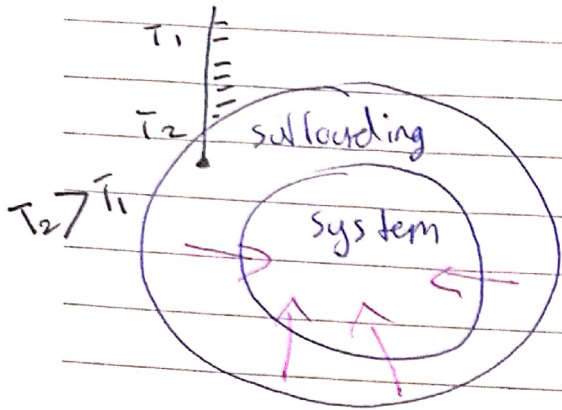 T1
T2
sullouding
T2 > T1
system